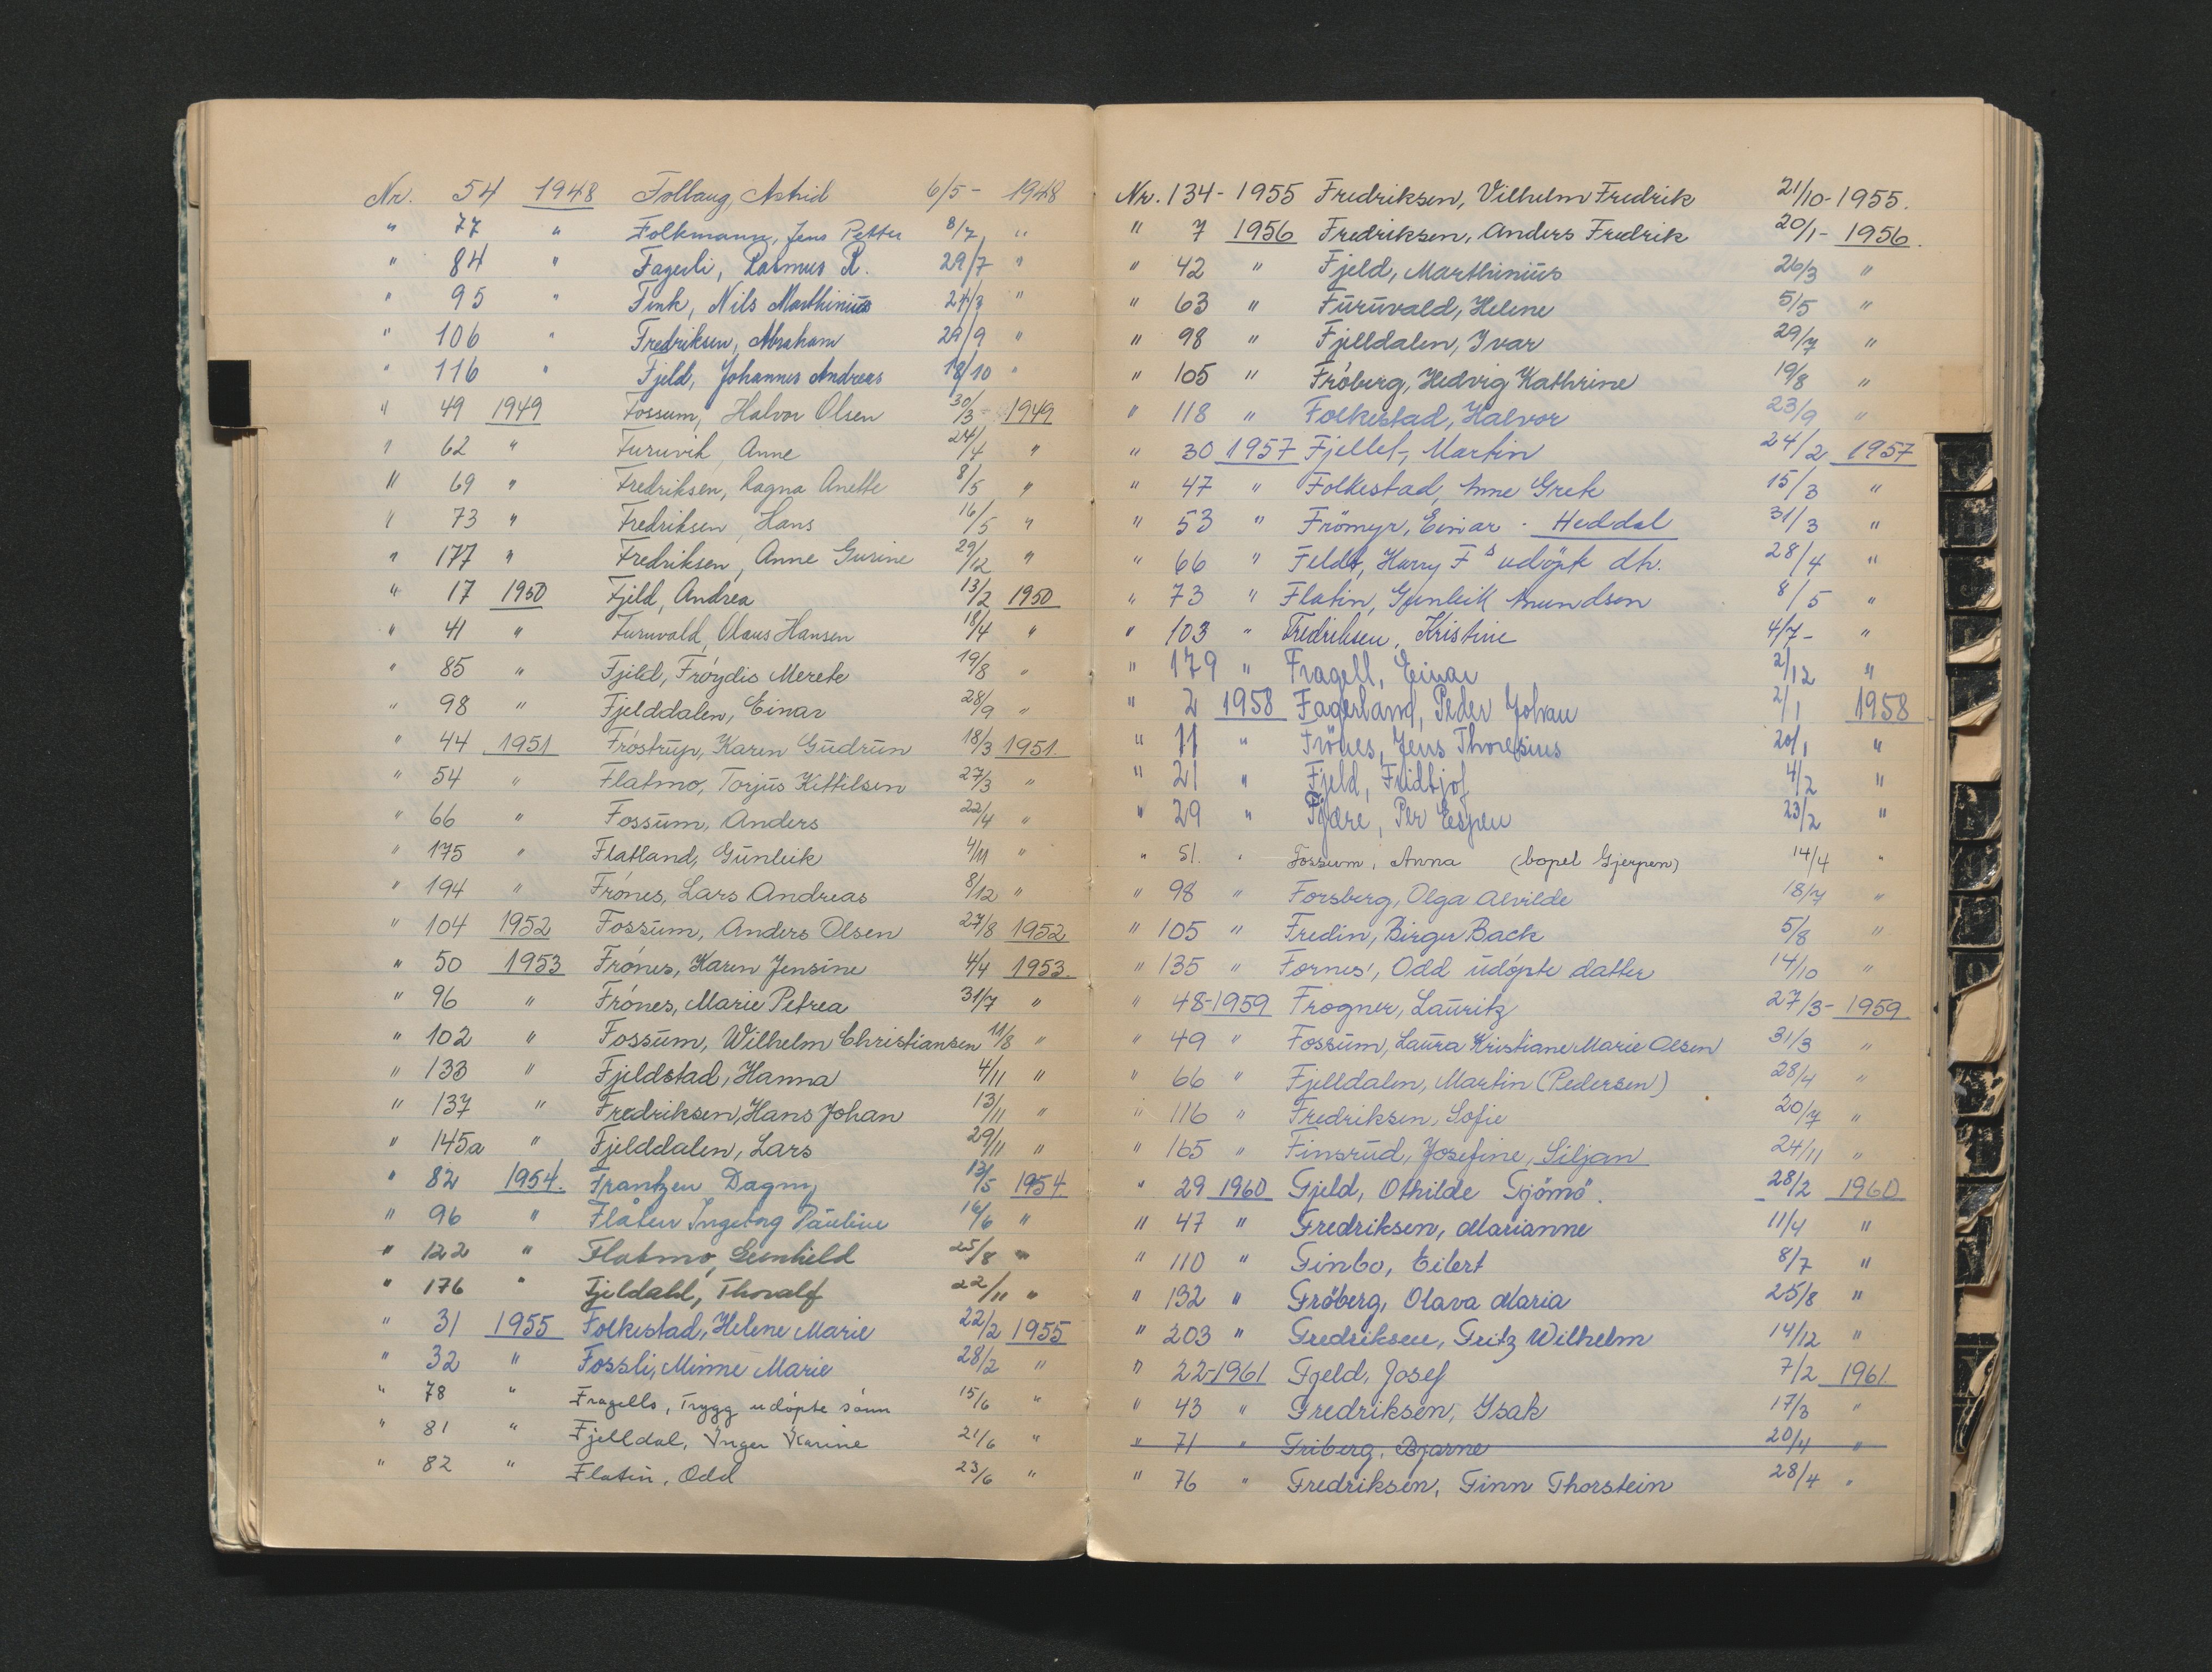 Nr. 54 1948 Follaug, Astrid 6/5 - 1948
" 77 " Folkmann, Jens Petter 8/7 "
" 84 " Fagerli, Rasmus R. 29/7 "
" 95 " Fink, Nils Marthinius 24/3 "
" 106 " Fredriksen, Abraham 29/9 "
" 116 " Fjeld, Johannes Andreas 18/10 "
" 49 1949 Fossum, Halvor Olsen 30/3 - 1949
" 62 " Furuvik, Anne 24/4 "
" 69 " Fredriksen, Ragna Anette 8/5 "
" 73 " Fredriksen, Hans 16/5 "
" 177 " Fredriksen, Anne Gurine 29/12 "
" 17 1950 Fjeld, Andrea 13/2 1950
" 41 " Furuvald, Olaus Hansen 18/4 "
" 85 " Fjeld, Frøydis Merete 19/8 "
" 98 " Fjelddalen, Einar 28/9 "
" 44 1951 Frøstrup, Karen Gudrun 18/3 1951.
" 54 " Flatmo, Torjus Kittilsen 27/3 "
" 66 " Fossum, Anders 22/4 "
" 175 " Flatland, Gunleik 4/11 "
" 194 " Frónes, Lars Andreas 8/12 "
" 104 1952 Fossum, Anders Olsen 27/8 1952
" 50 1953 Frónes, Karen Jensine 4/4 1953.
" 96 " Frónes, Marie Petrea 31/7 "
" 102 " Fossum, Wilhelm Christiansen 11/8 "
" 133 " Fjeldstad, Hanna 4/11 "
" 137 " Fredriksen, Hans Johan 13/11 "
" 145a " Fjelddalen, Lars 29/11 "
" 82 1954. Frantzen Dagny 13/5 1954
" 96 " Flåten Ingeborg Pauline 16/6 "
" 122 " Flatmo, Gunhild 25/8 "
" 176 " Fjeldahl, Thoralf 22/11 "
" 31 1955 Folkestad, Helene Marie 22/2 1955
" 32 " Fossli, Minne Marie 28/2 "
" 78 " Fragells, Trygg udøpte sønn 15/6 "
" 81 " Fjelldal, Inger Karine 21/6 "
" 82 " Flatin, Odd 23/6 "
Nr. 134 - 1955 Fredriksen, Vilhelm Fredrik 21/10 - 1955.
" 7 1956 Fredriksen, Anders Fredrik 20/1 - 1956.
" 42 " Fjeld, Marthinius 26/3 "
" 63 " Furuvald, Helene 5/5 "
" 98 " Fjelldalen, Ivar 29/7 "
" 105 " Fróberg, Hedvig Kathrine 19/8 "
" 118 " Folkestad, Halvor 23/9 "
" 30 1957 Fjellet, Martin 24/2 1957
" 47 " Folkestad, Anne Grete 15/3 "
" 53 " Frömyr, Einar - Heddal 31/3 "
" 66 " Feldt, Harry F s udöpt dtr. 28/4 "
" 73 " Flatin, Gunleik Amundsen 8/5 "
" 103 " Fredriksen, Kristine 4/7 - "
" 179 " Fragell, Einar 2/12 "
" 2 1958 Fagerland, Peder Johan 2/1 1958
" 11 " Frönes, Jens Thoresius 20/1 "
" 21 " Fjeld, Fridtjof 4/2 "
" 29 " Fjære, Per Espen 23/2 "
" 51. " Fossum, Anna (bopel Gjerpen) 14/4 "
" 98 " Forsberg, Olga Alvilde 18/7 "
" 105 " Fredin, Birger Back 5/8 "
" 135 " Fornes', Odd udöpte datter 14/10 "
" 48-1959 Frogner, Lauritz 27/3 - 1959
" 49 " Fossum, Laura Kristiane Marie Olsen 31/3 "
" 66 " Fjelldalen, Martin (Pedersen) 28/4 "
" 116 " Fredriksen, Sofie 20/7 "
" 165 " Finsrud, Josefine, Siljan 24/11 "
" 29 1960 Fjeld, Othilde Tjömö. 28/2 1960
" 47 " Fredriksen, Marianne 11/4 "
" 110 " Finbo, Eilert 8/7 "
" 132 " Fröberg, Olava Maria 25/8 "
" 203 " Fredriksen, Fritz Wilhelm 14/12 "
" 22-1961 Fjeld, Josef 7/2 1961
" 43 " Fredriksen, Isak 17/3 "
" 71 " Friberg, Bjarne 20/4 "
" 76 " Fredriksen, Finn Thorstein 28/4 "